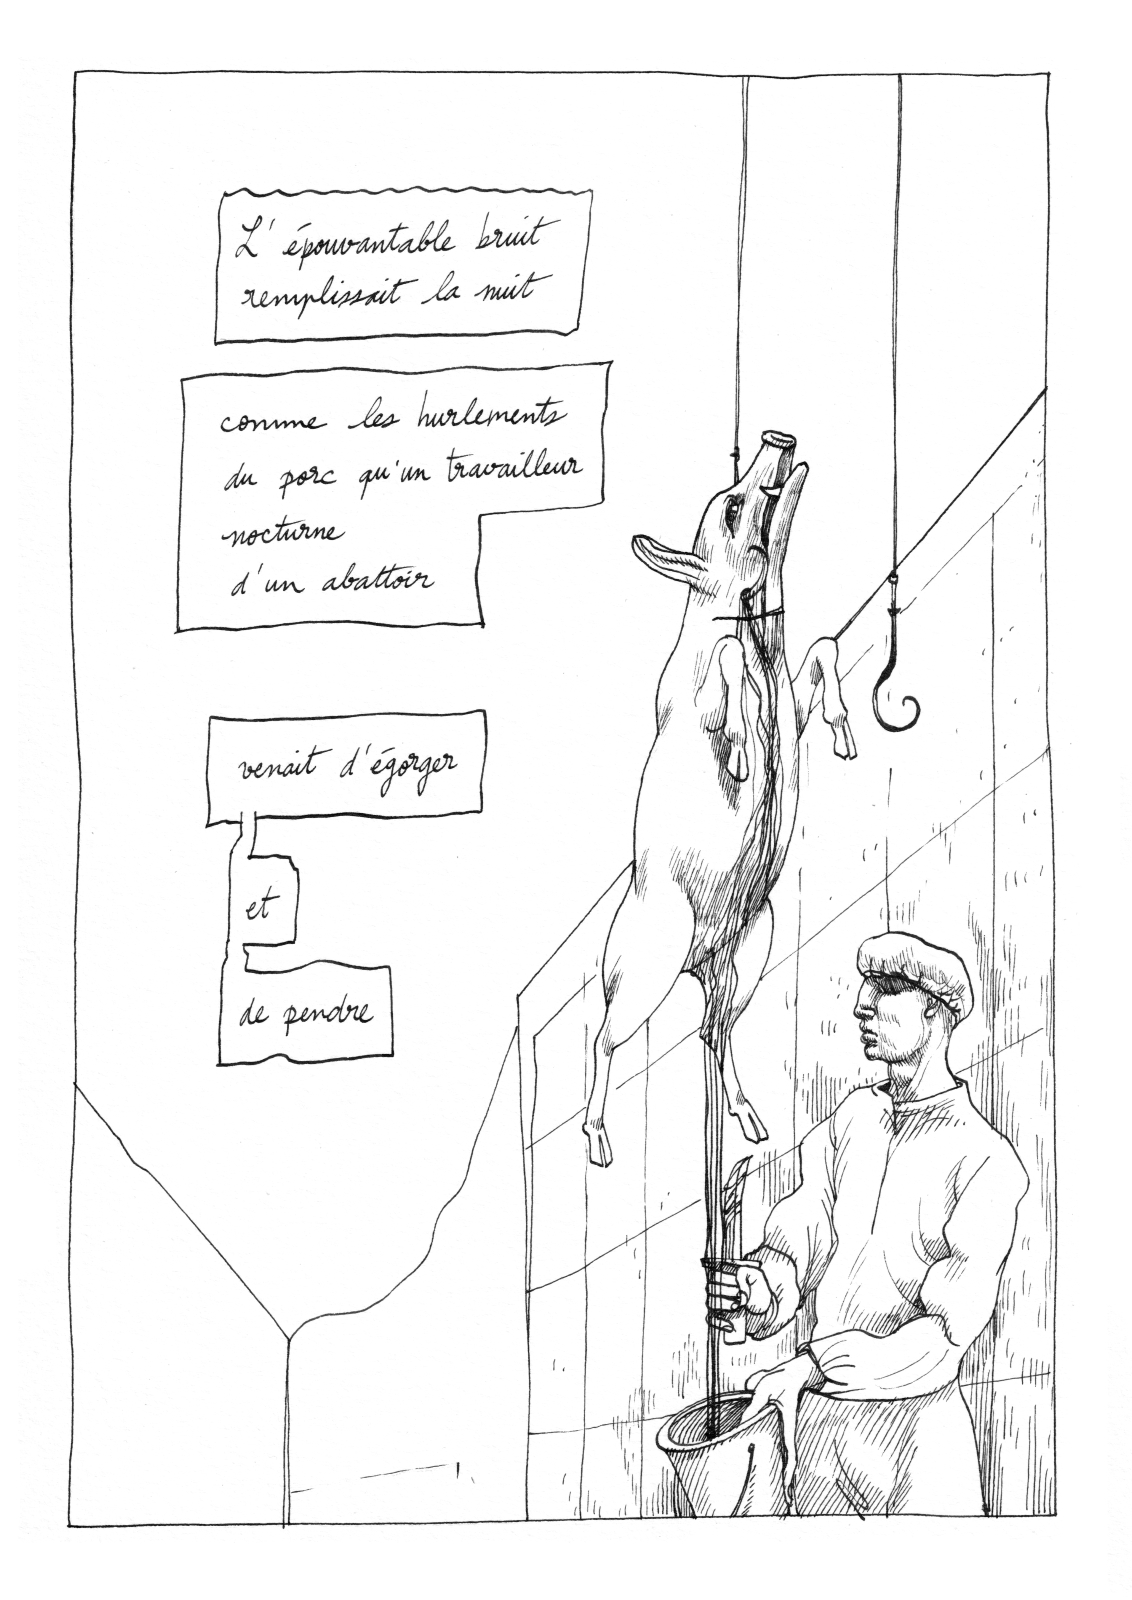 L'épouvantable bruit
remplissait la nuit
comme les hurlements
du porc qu'un travailleur
nocturne
d'un abattoir
venait d'égorger
et
de pendre